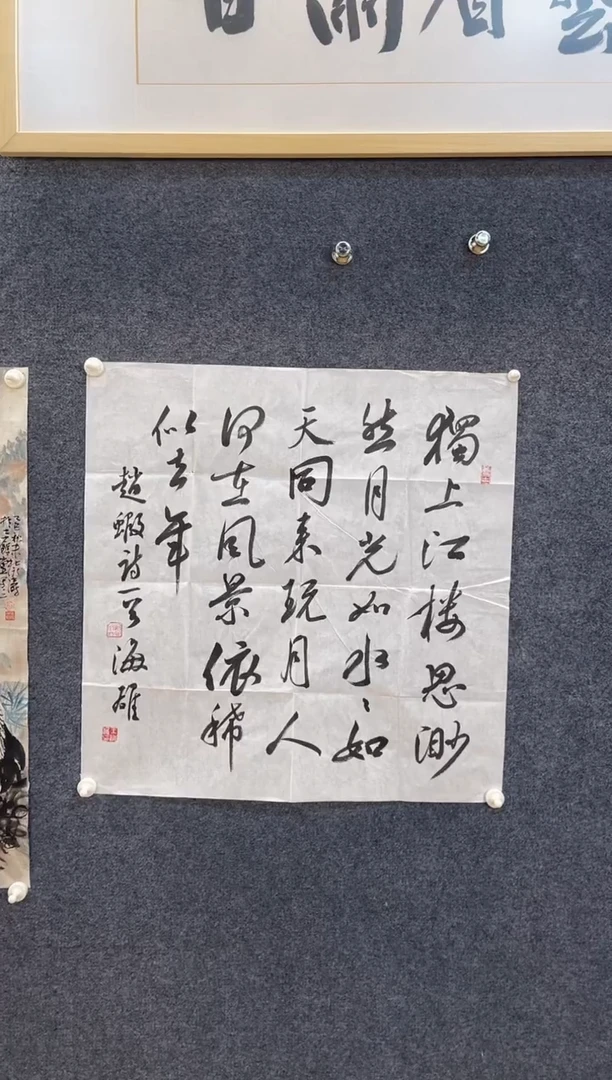 獨上江楼思渺
然月光如水〻如
天同来玩月人
何在風景依稀
似去年
趙蝦诗一首 海雄